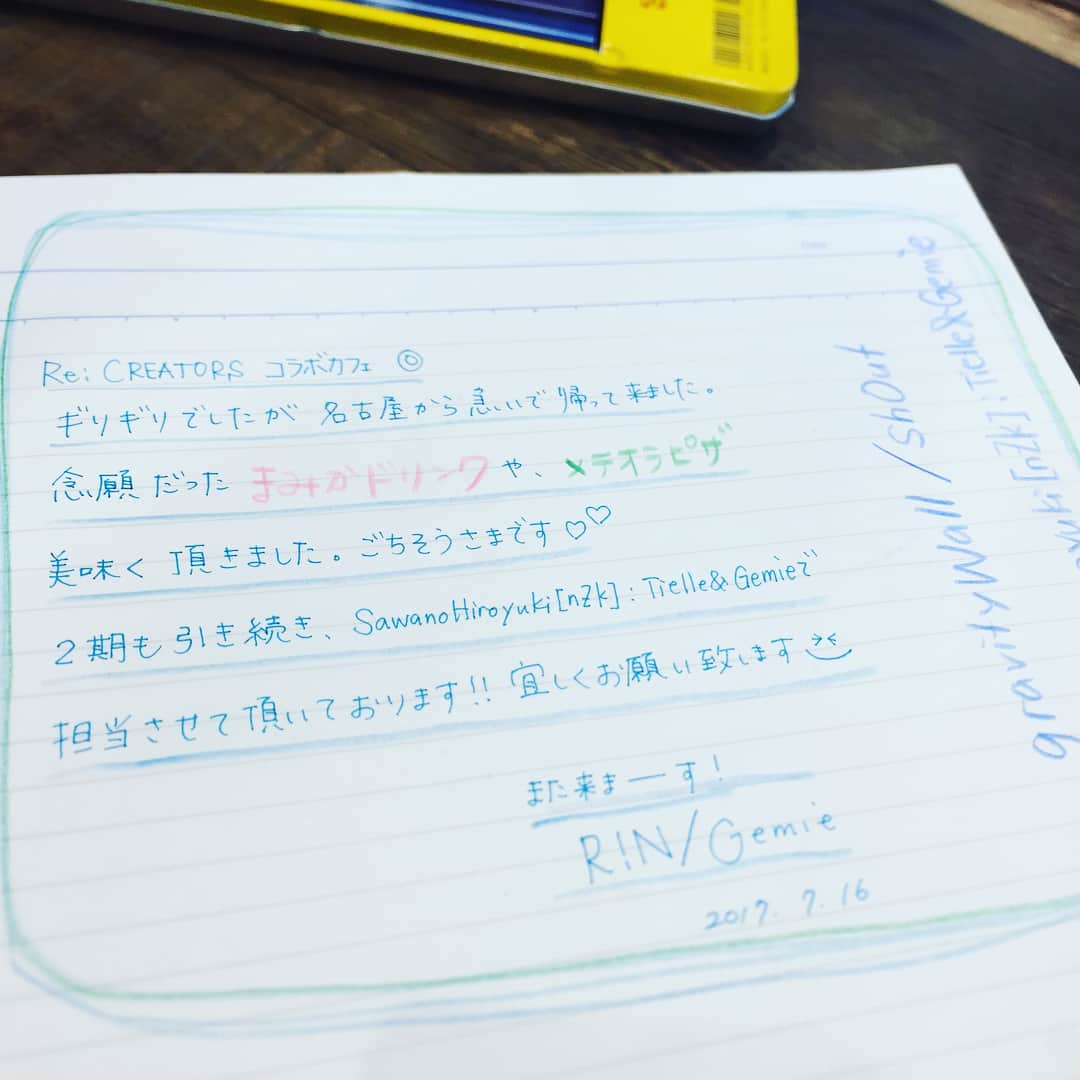 Re: CREATORS コラボカフェ ◎
ギリギリでしたが 名古屋から急いで帰って来ました。
念願だった まみかドリンク や、メテオラピザ
美味く 頂きました。ごちそうさまです♡♡
2期も引き続き、SawanoHiroyuki[nZk]:Tielle&Gemieで
担当させて頂いております!! 宜しくお願い致します
また来まーす!
R!N/Gemie
2017. 7. 16
gravityWall/shOut
yuki[nZk]:Tielle&Gemie